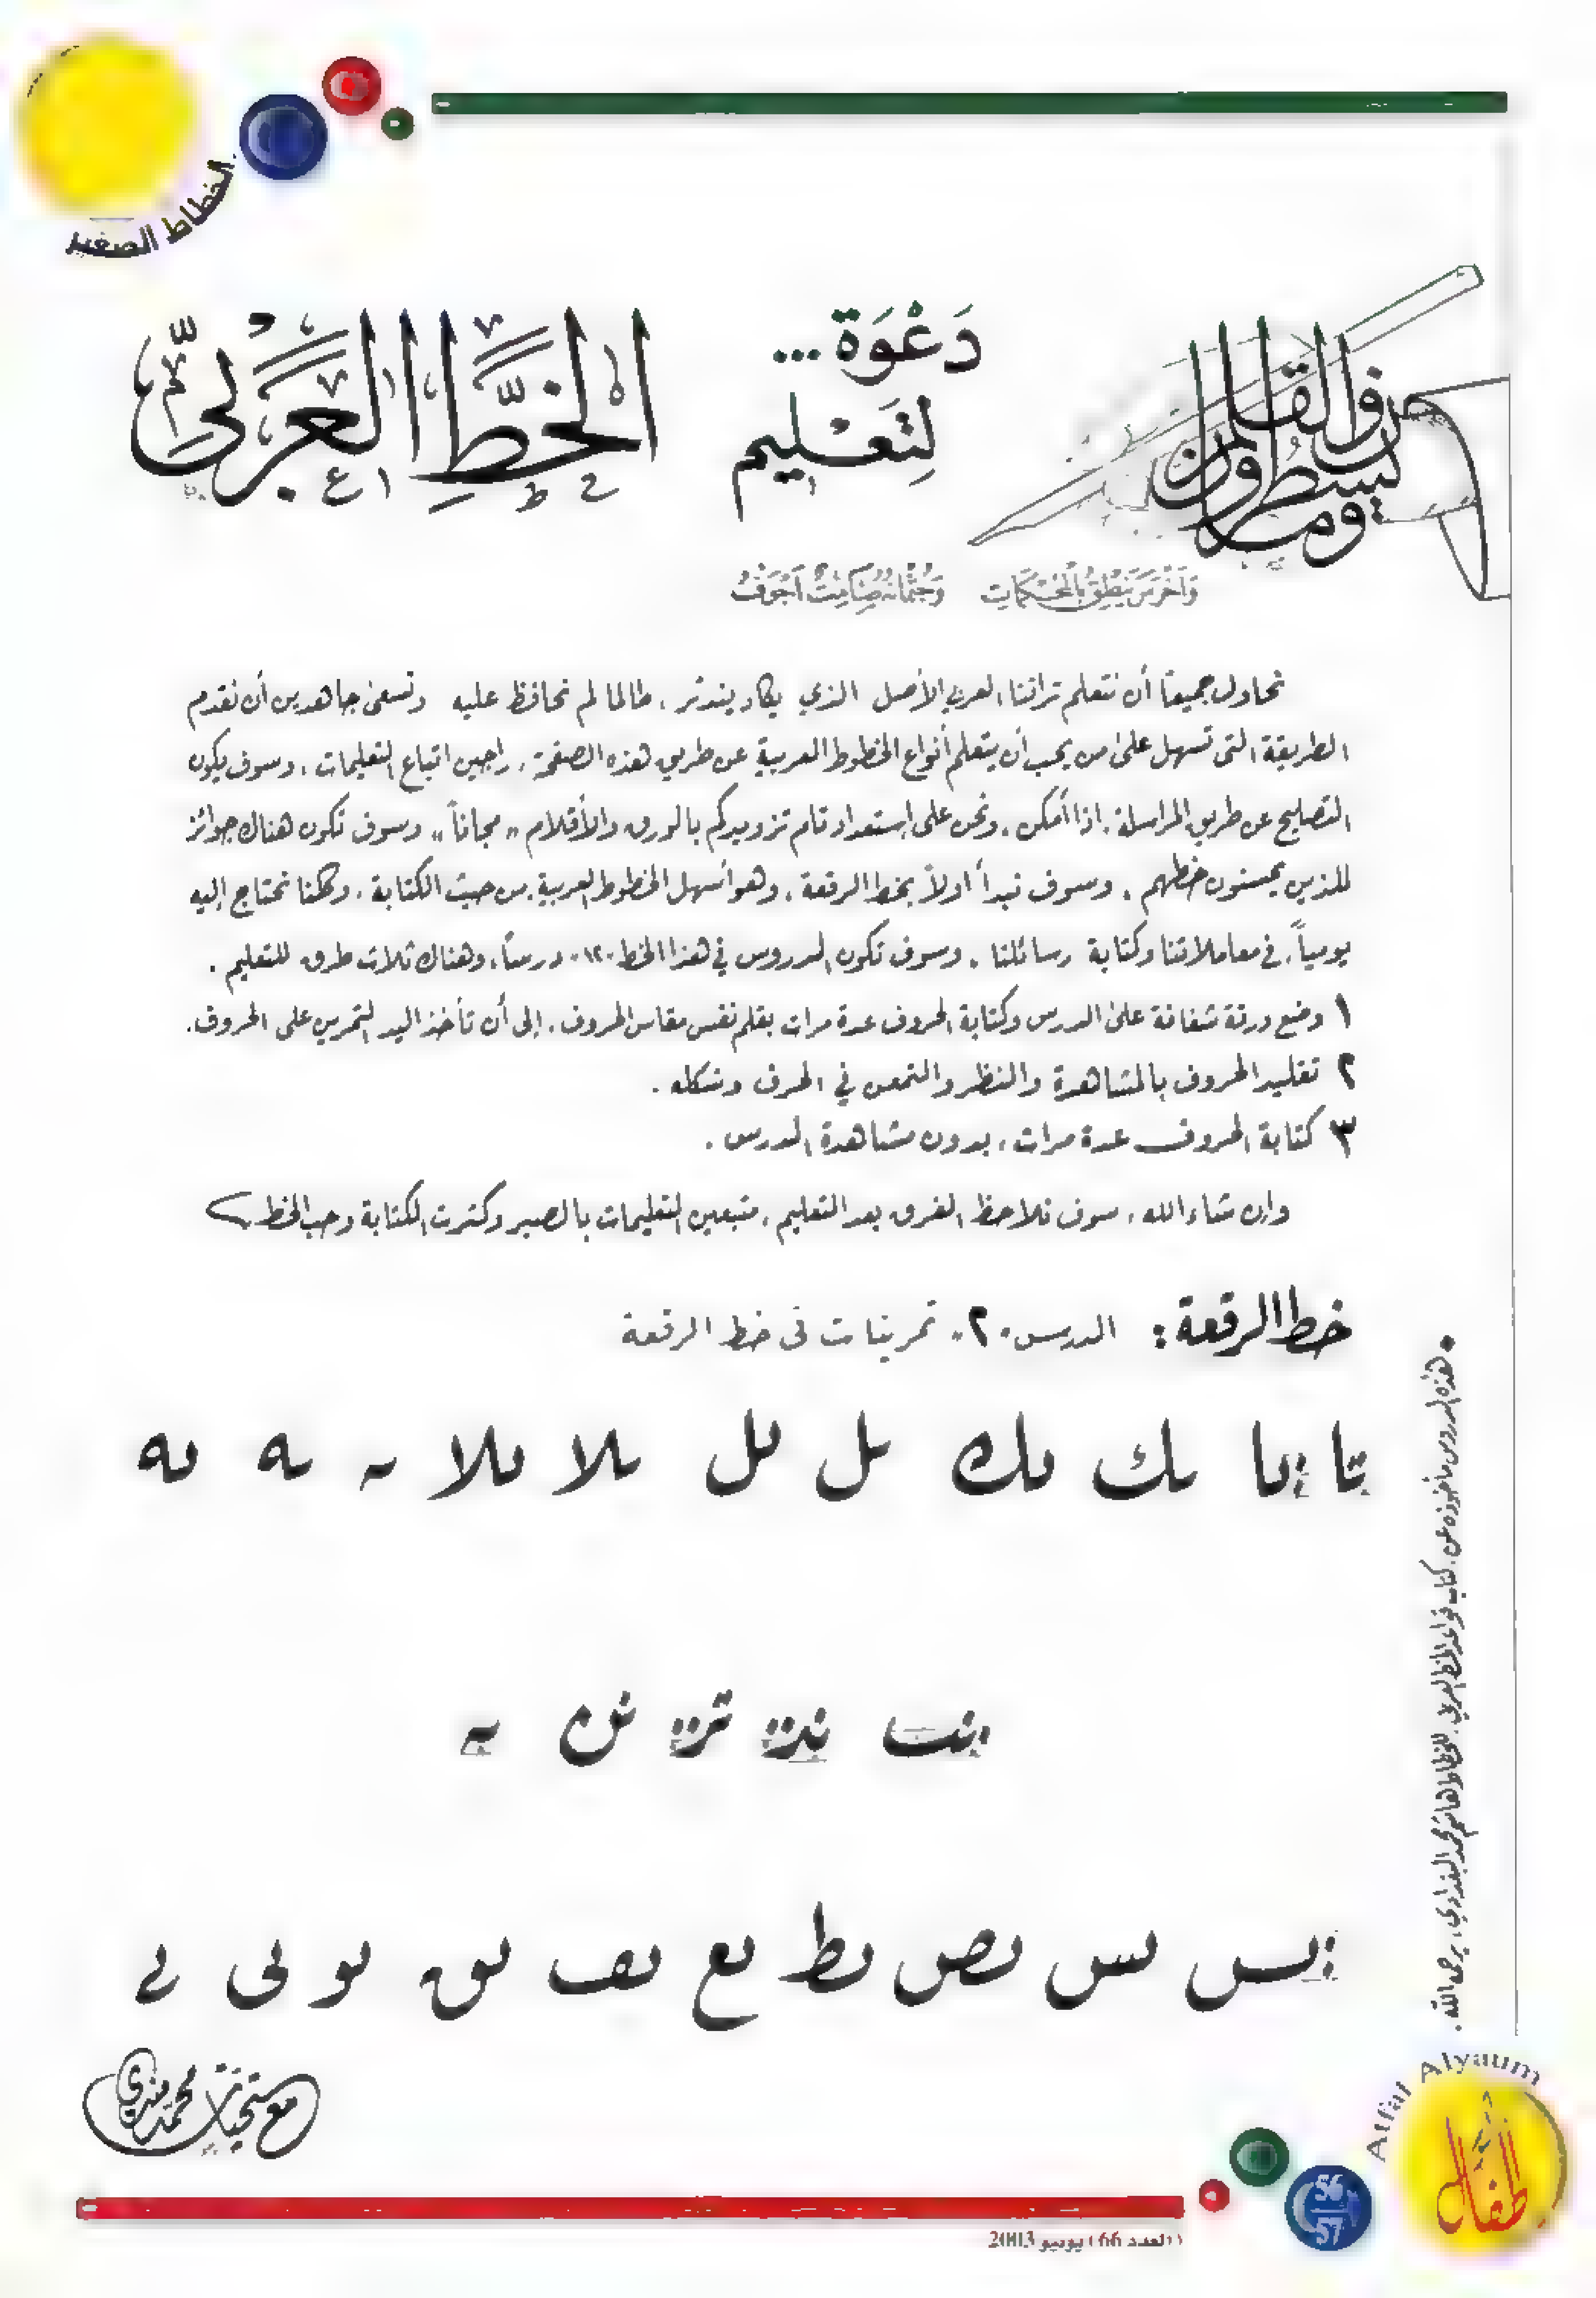 الخطاط الصغير
دَعْوَة...
لِتَعْليم
الخَطِّ العَرَبيّ
ن والقلم وما يسطرون
وَأَخْرَسَ يَنْطِقُ بِالْمُحْكَمَاتِ وَجُثْمَانُهُ صَامِتٌ أَجْوَفُ
نحاول جميعاً أن نتعلم تراثنا العربي الأصل الذي يكاد يندثر، طالما لم نحافظ عليه ونسعى جاهدين أن نقدم
الطريقة التي تسهل على من يحب أن يتعلم أنواع الخطوط العربية عن طريق هذه الصفحة، راجين اتباع التعليمات، وسوف يكون
التصليح عن طريق المراسلة، اذا أمكن، ونحن على إستعداد تام تزويدكم بالورق والأقلام „ مجاناً „ وسوف تكون هناك جوائز
للذين يحسنون خطهم. وسوف نبدأ اولاً بخط الرقعة، وهو أسهل الخطوط العربية، من حيث الكتابة، وكلنا نحتاج إليه
يومياً، في معاملاتنا وكتابة رسائلنا، وسوف تكون الدروس في هذا الخط ،١٢، درساً، وهناك ثلاث طرق للتعليم.
١ وضع ورقة شفافة على الدرس وكتابة الحروف عدة مرات بقلم نفس مقاس الحروف، إلى أن تأخذ اليد التمرين على الحروف.
٢ تقليد الحروف بالمشاهدة والنظر والتمعن في الحرف وشكله.
٣ كتابة الحروف عدة مرات، بدون مشاهدة الدرس.
وإن شاء الله، سوف نلاحظ الفرق بعد التعليم، متبعين التعليمات بالصبر وكثرت الكتابة وحب الخط
خط الرقعة: الدرس ،٢، تمرينات في خط الرقعة
هذه الدروس مأخوذه عن كتاب قواعد الخط العربي، للخطاط هاشم محمد البغدادي، يرحمه الله.
مع تحيات محمد مندي
Atfal Alyaum
أطفال
56
57
(العدد 66) يونيو 2003